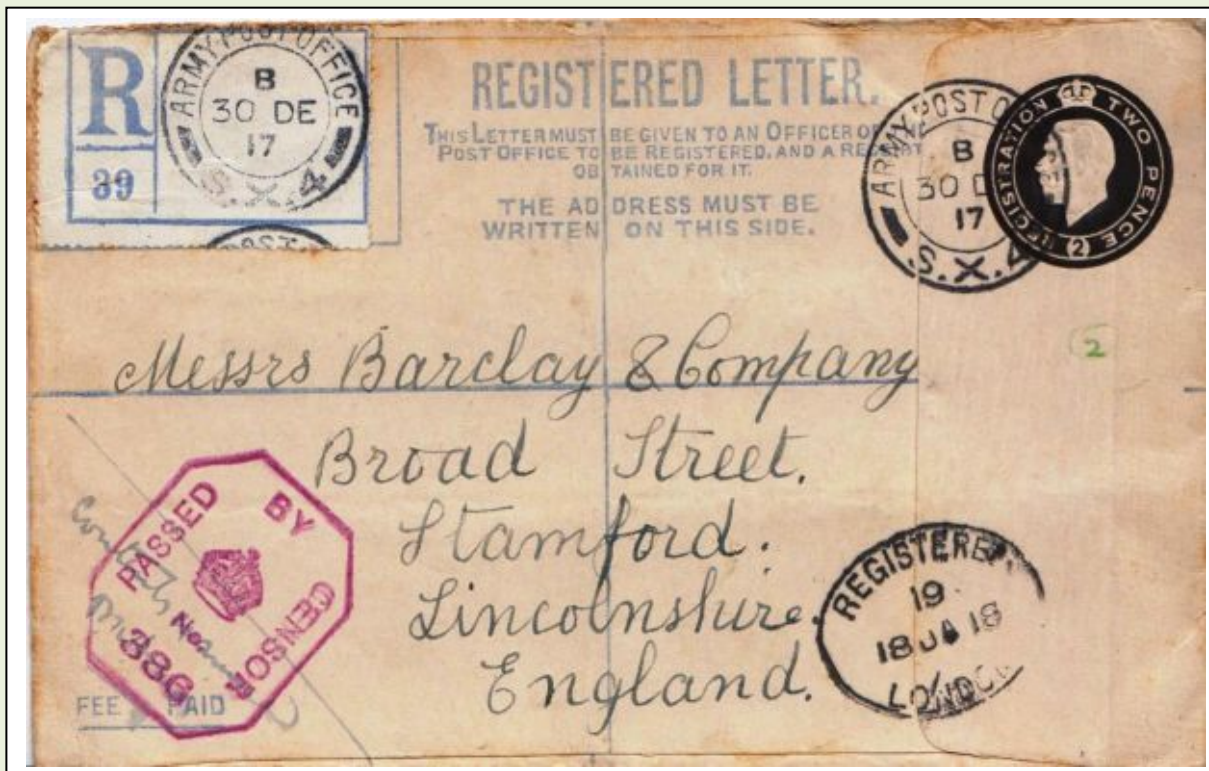 R
39
ARMY POST OFFICE
B
30 DE
17
S.X.4
POST
REGISTERED LETTER.
THIS LETTER MUST BE GIVEN TO AN OFFICER OF THE
POST OFFICE TO BE REGISTERED, AND A RECEIPT
OBTAINED FOR IT.
THE ADDRESS MUST BE
WRITTEN ON THIS SIDE.
ARMY POST O
B
30 D
17
S.X.4
REGISTRATION TWO PENCE (2)
2
Messrs Barclay & Company
Broad Street.
Stamford.
Lincolnshire.
England.
PASSED BY
CENSOR
No
386
FEE PAID
REGISTERED
19
18 JA 18
LONDON